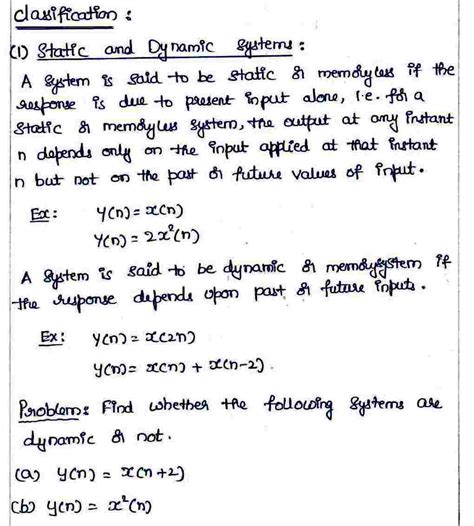 clasification :
(1) Static and Dynamic systems :
A system is said to be static or memoryless if the
response is due to present input alone, i.e. for a
static or memoryless system, the output at any instant
n depends only on the input applied at that instant
n but not on the past or future values of input.
Ex: y(n) = x(n)
y(n) = 2x²(n)
A system is said to be dynamic or memorysystem if
the response depends upon past or future inputs.
Ex: y(n) = x(2n)
y(n) = x(n) + x(n-2).
Problem: Find whether the following systems are
dynamic or not.
(a) y(n) = x(n+2)
(b) y(n) = x²(n)